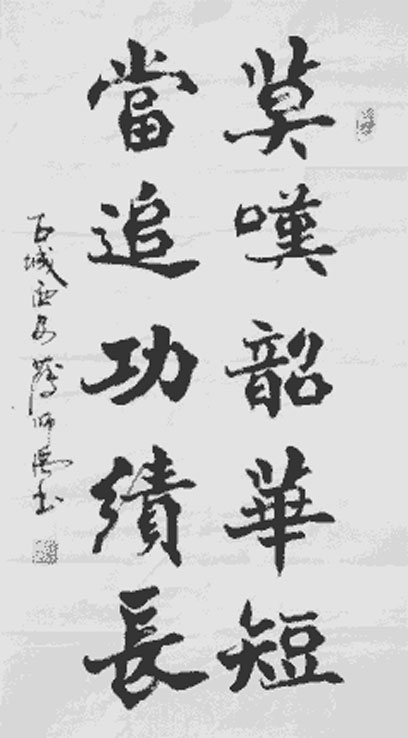 莫嘆韶華短
當追功績長
古城西安 師 書